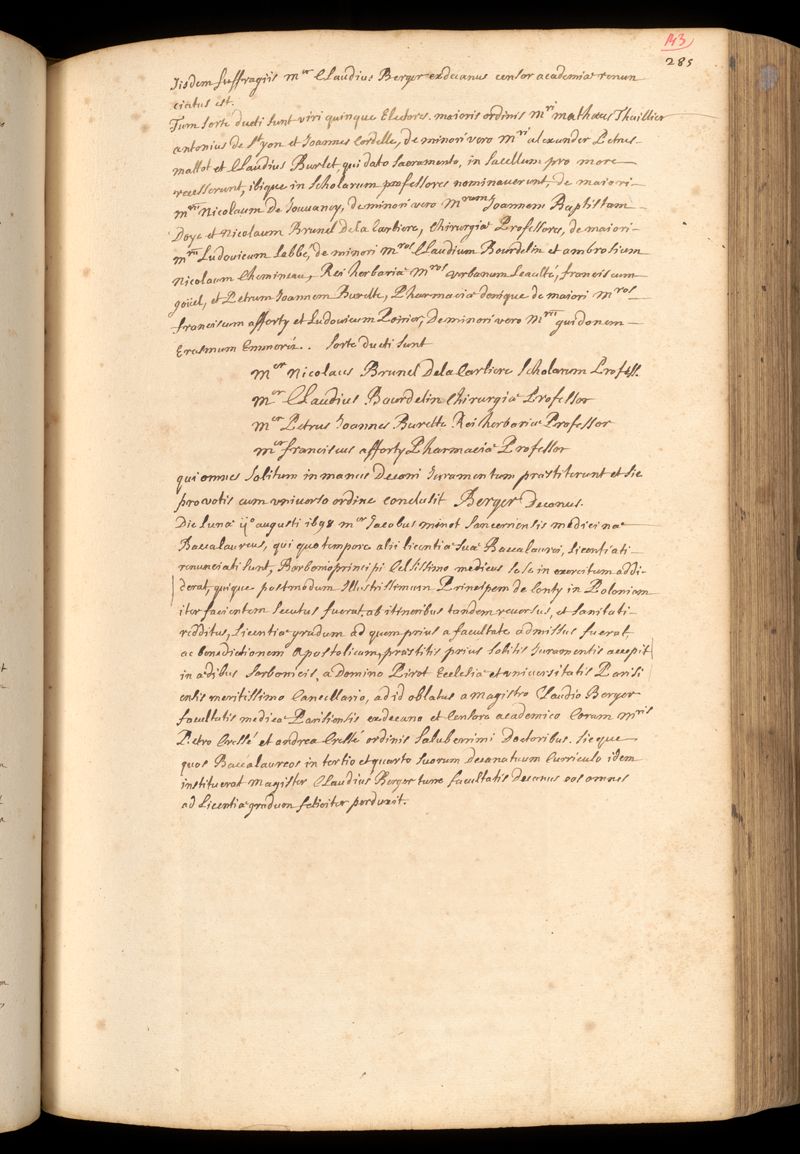 143
285
Iisdem suffragiis Mer Claudius Berger exdecanus censor academiæ renun
ciatus est.
Tum sorte ducti sunt viri quinque Electores. maioris ordinis Mri mathæus Thuillier
antonius de St yon et Joannes Cordelle, de minori vero Mri alexander Petrus
mallot et Claudius Burlet, qui dato sacramento, in sacellum pro more
recesserunt, ibique in scholarum professores nominaverunt, de maiori
Mrum Nicolaum De Jouvancy, de minori vero Mrum Joannem Baptistam
Doye et Nicolaum Brunel de la Carliere, Chirurgiæ Professores, de maiori
Mrum Ludovicum Labbé, de minori Mros Claudium Bourdelin et ambrosium
Nicolaum Chemineau, Rei herbariæ Mros urbanum Leaulté, franciscum
goüel, et Petrum Joannem Burette, Pharmaciæ denique de maiori Mros
franciscum afforty et Ludovicum Poirier, De minori vero Mrum guidonem
Erasmum Emmerez.. sorte ducti sunt
Mer Nicolaus Brunel De la Carliere Scholarum Profess.
Mer Claudius Bourdelin Chirurgiæ Professor
Mer Petrus Joannes Burette Rei herbariæ Professor
Mer franciscus afforty Pharmaciæ Professor
qui omnes solitum in manus Decani Juramentum præstiterunt et sic
pro votis cum universo ordine conclusit Berger Decanus.
Die Lunæ ijo augusti 1698 Mer Jacobus minot Sancerrensis medicinæ
Baccalaureus, qui quo tempore alii licentiæ suæ Baccalaurei, licentiati
renunciati sunt, Borbonio principi Celsissimo medicus sese in exercitum addi
derat, quique postmodum Illustrissimum Principem de Conty in Poloniam
iter facientem secutus fuerat, ab itineribus tandem reversus, et sanitati
redditus, Licentiæ gradum ad quem prius a facultate admissus fuerat,
ac benedictionem apostolicam, præstitis prius solitis Juramentis accepit
in ædibus Sorbonicis, a Domino Pirot Ecclesiæ et universitatis Parisi
ensis meritissimo Cancellario, ad id oblatus a Magistro Claudio Berger
facultatis medicæ Parisiensis exdecano et Censore academico Coram Mris
Petro Cressé et andrea Cressé ordinis Saluberrimi Doctoribus. sicque
quos Baccalaureos in tertio et quarto suorum decanatuum Curriculo idem
instituerat Magister Claudius Berger tunc facultatis Decanus eos omnes
ad Licentiæ gradum feliciter perduxit.